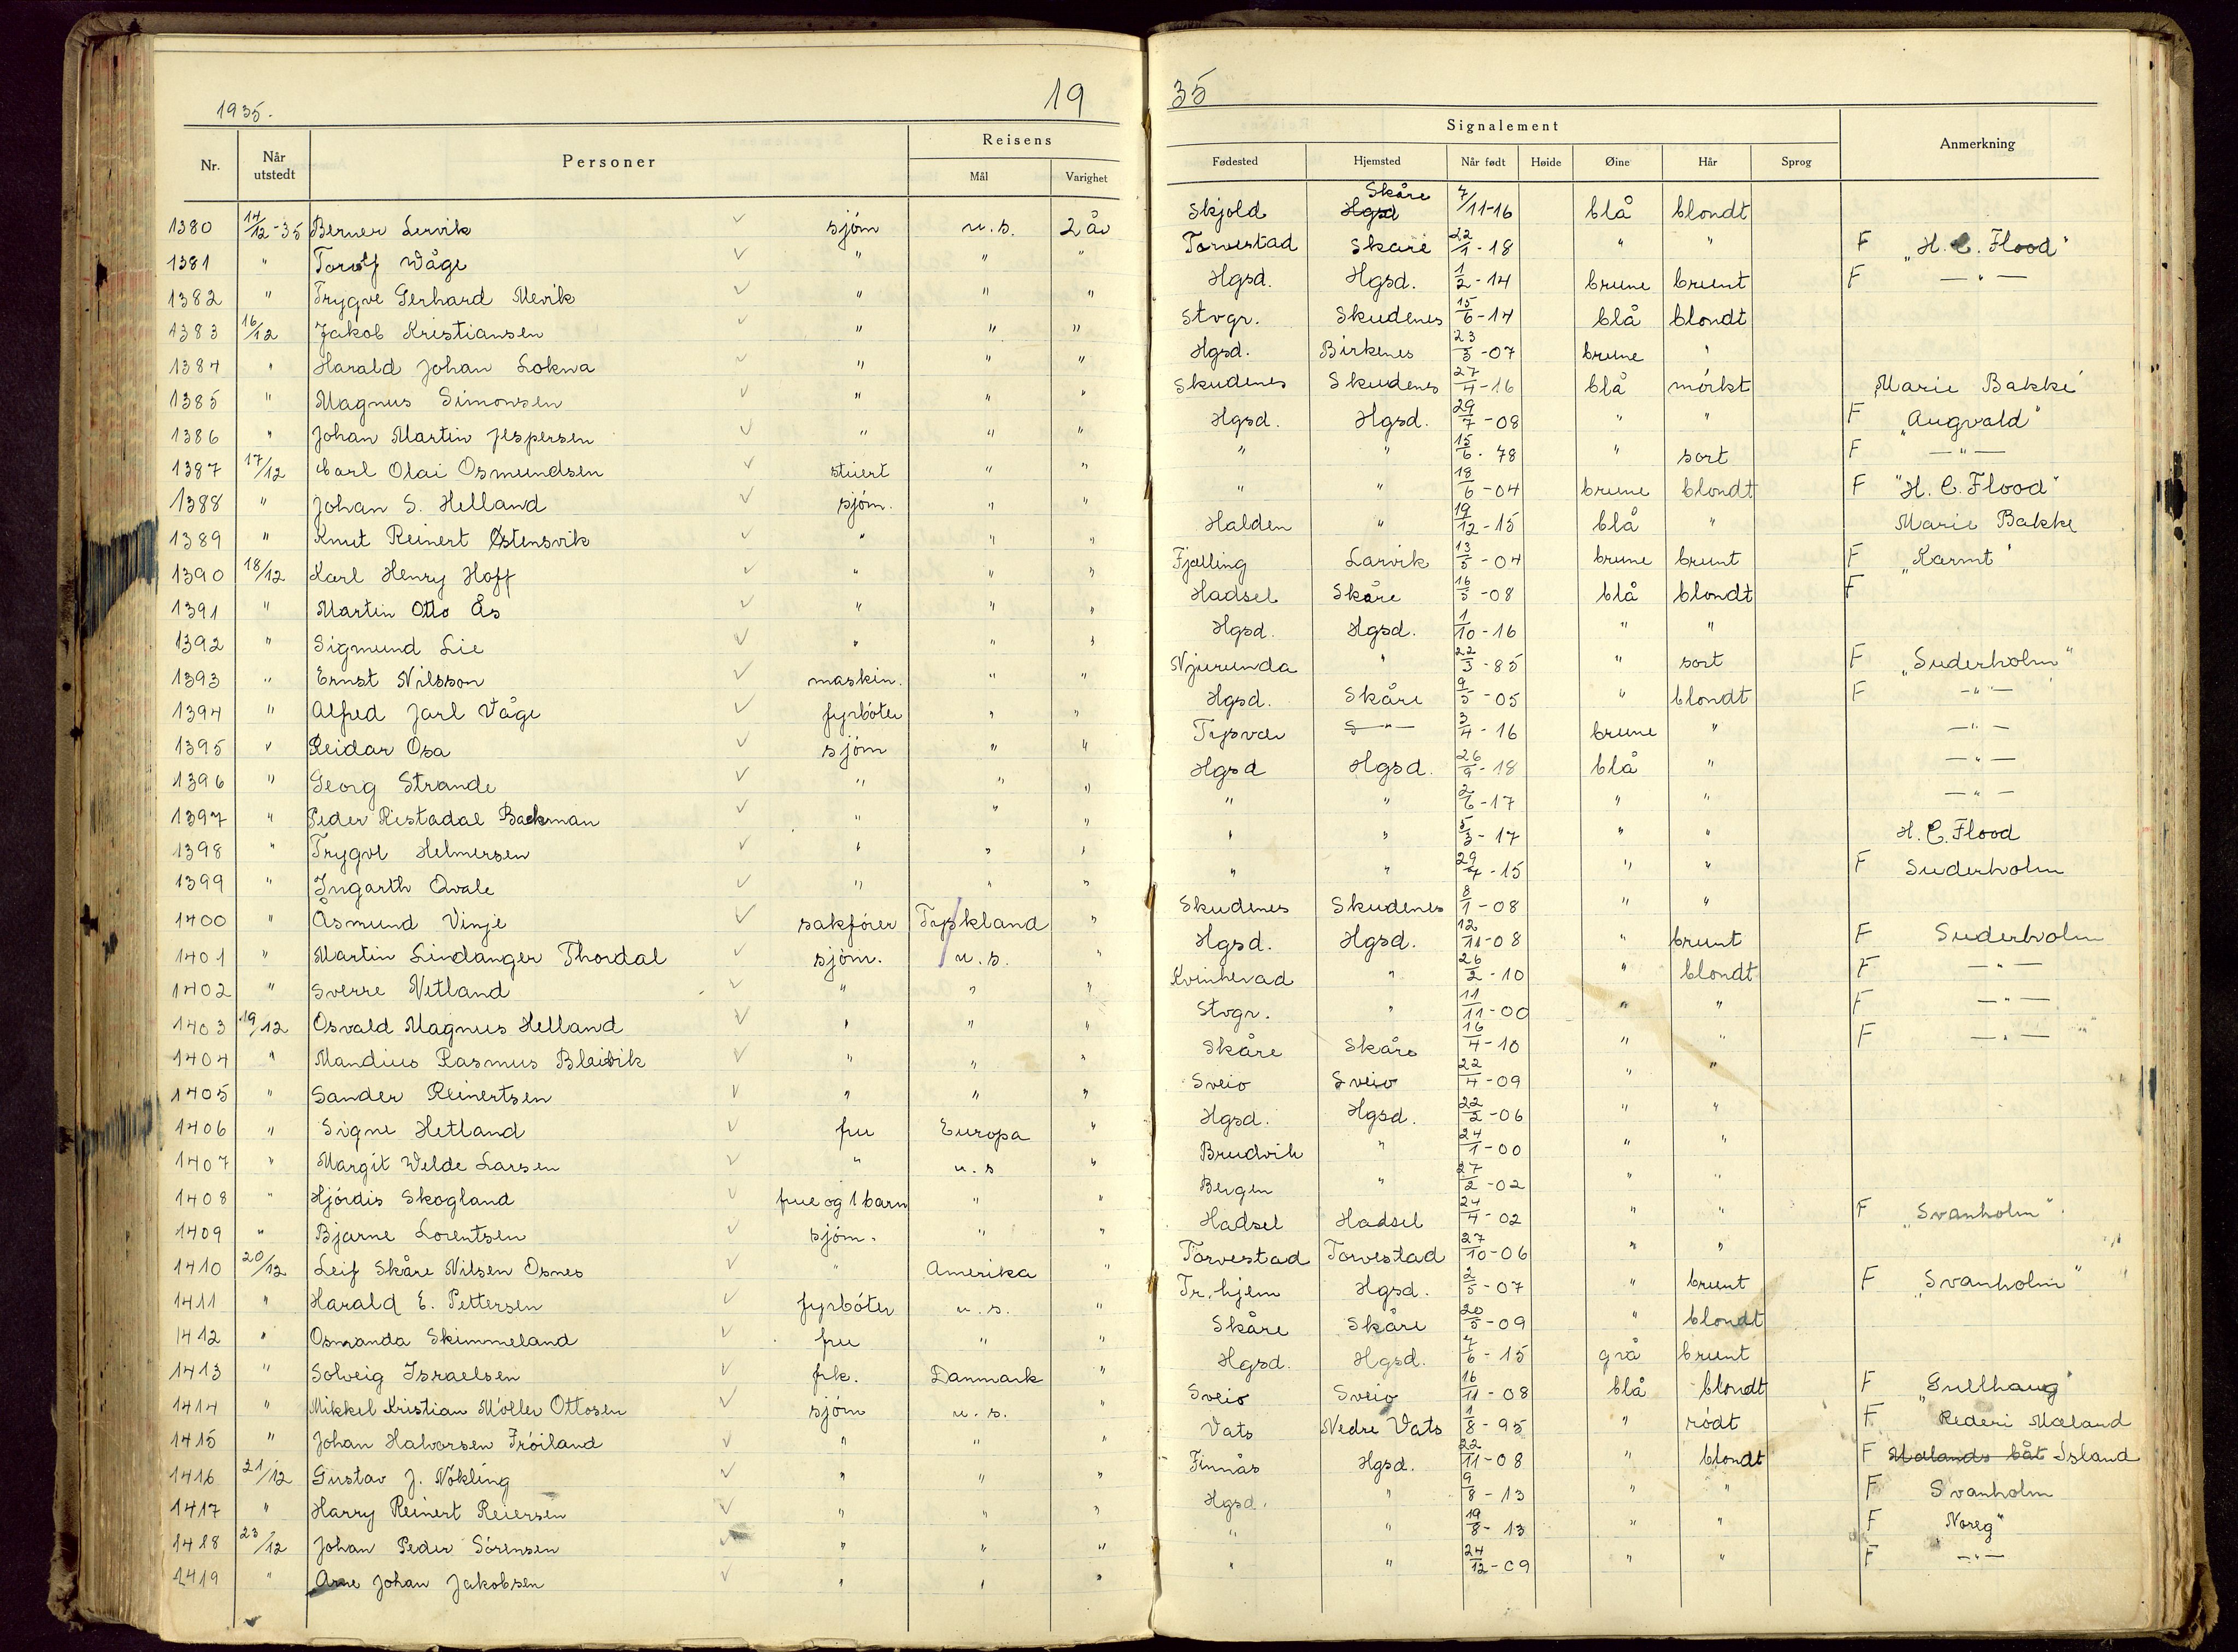 1935. 19 35
Nr. Når utstedt Personer Reisens Mål Varighet Signalement Fødested Hjemsted Når født Høide Øine Hår Sprog Anmerkning
1380 14/12-35 Berner Lervik sjöm u.s. 2 år Skjold Hgsd Skåre 7/11-16 blå blondt
1381 " Torolf Wåge " " " Torvestad Skåre 22/1-18 " " F "H. C. Flood"
1382 " Trygve Gerhard Mevik " " " Hgsd. Hgsd. 1/2-14 brune brunt F — " —
1383 16/12 Jakob Kristiansen " " " Stvgr. Skudenes 15/6-14 blå blondt
1384 " Harald Johan Lokna " " " Hgsd. Birkenes 23/3-07 brune "
1385 " Magnus Simonsen " " " Skudenes Skudenes 27/4-16 blå mörkt "Marie Bakke"
1386 " Johan Martin Jespersen " " " Hgsd. Hgsd. 29/7-08 " " F "Augvald"
1387 17/12 Carl Olai Osmundsen stuert " " " " 15/6-78 " sort F — " —
1388 " Johan S. Helland sjöm. " " " " 18/6-04 brune blondt F "H. C. Flood"
1389 " Knut Reinert Østensvik " " " Halden " 19/12-15 blå " Marie Bakke
1390 18/12 Karl Henry Hoff " " " Fjælling Larvik 13/5-04 brune brunt F "Karmt"
1391 " Martin Otto Ås " " " Hadsel Skåre 16/5-08 blå blondt F
1392 " Sigmund Lie " " " Hgsd. Hgsd. 1/10-16 " "
1393 " Ernst Nilsson maskin. " " Njurunda " 22/3-85 " sort F "Suderholm"
1394 " Alfred Jarl Våge fyrböter " " Hgsd. Skåre 9/5-05 " blondt F — " —
1395 " Reidar Osa sjöm " " Tysvær S — " — 3/4-16 brune " — " —
1396 " Georg Strande " " " Hgsd Hgsd. 26/9-18 blå " — " —
1397 " Peder Ristadal Backman " " " " " 2/6-17 " " — " —
1398 " Trygve Helmersen " " " " " 5/3-17 " " H. C. Flood
1399 " Ingarth Qvale " " " " " 29/4-15 " " F Suderholm
1400 " Åsmund Vinje sakförer Tyskland " Skudenes Skudenes 8/1-08 " "
1401 " Martin Lindanger Thordal sjöm. u.s. " Hgsd. Hgsd. 12/11-08 " brunt F Suderholm
1402 " Sverre Vetland " " " Kvinherad " 26/2-10 " blondt F — " —
1403 19/12 Osvald Magnus Helland " " " Stvgr. " 11/11-00 " " F — " —
1404 " Mandius Rasmus Bleivik " " " Skåre Skåre 16/4-10 " " F — " —
1405 " Sander Reinertsen " " " Sveio Sveio 22/4-09 " "
1406 " Signe Hetland fru Europa " Hgsd. Hgsd. 22/2-06 " "
1407 " Margit Welde Larsen " u.s " Bruvik " 24/1-00 " "
1408 " Hjördis Skogland frue og 1 barn " " Bergen " 27/2-02 " "
1409 " Bjarne Lorentsen sjöm. " " Hadsel Hadsel 24/4-02 " " F "Svanholm"
1410 20/12 Leif Skåre Nilsen Osnes " Amerika " Torvestad Torvestad 27/10-06 " "
1411 " Harald E. Pettersen fyrböter u.s. " Tr.hjem Hgsd. 2/5-07 " brunt F "Svanholm"
1412 " Osmanda Skimmeland fru " " Skåre Skåre 20/5-09 " blondt
1413 " Solveig Israelsen frk. Danmark " Hgsd. Hgsd. 7/6-15 grå brunt
1414 " Mikkel Kristian Möller Ottosen sjöm u.s. " Sveio Sveio 16/11-08 blå blondt F "Gullhaug"
1415 " Johan Halvorsen Fröiland " " " Vats Nedre Vats 1/8-95 " rödt F Rederi Mæland
1416 21/12 Gustav J. Nökling " " " Finnås Hgsd. 22/11-08 " blondt F Mælands båt Island
1417 " Harry Reinert Reiersen " " " Hgsd. " 9/8-13 " " F Svanholm
1418 23/12 Johan Peder Sörensen " " " " " 19/8-13 " " F "Noreg"
1419 " Arne Johan Jakobsen " " " " " 24/12-09 " " F — " —